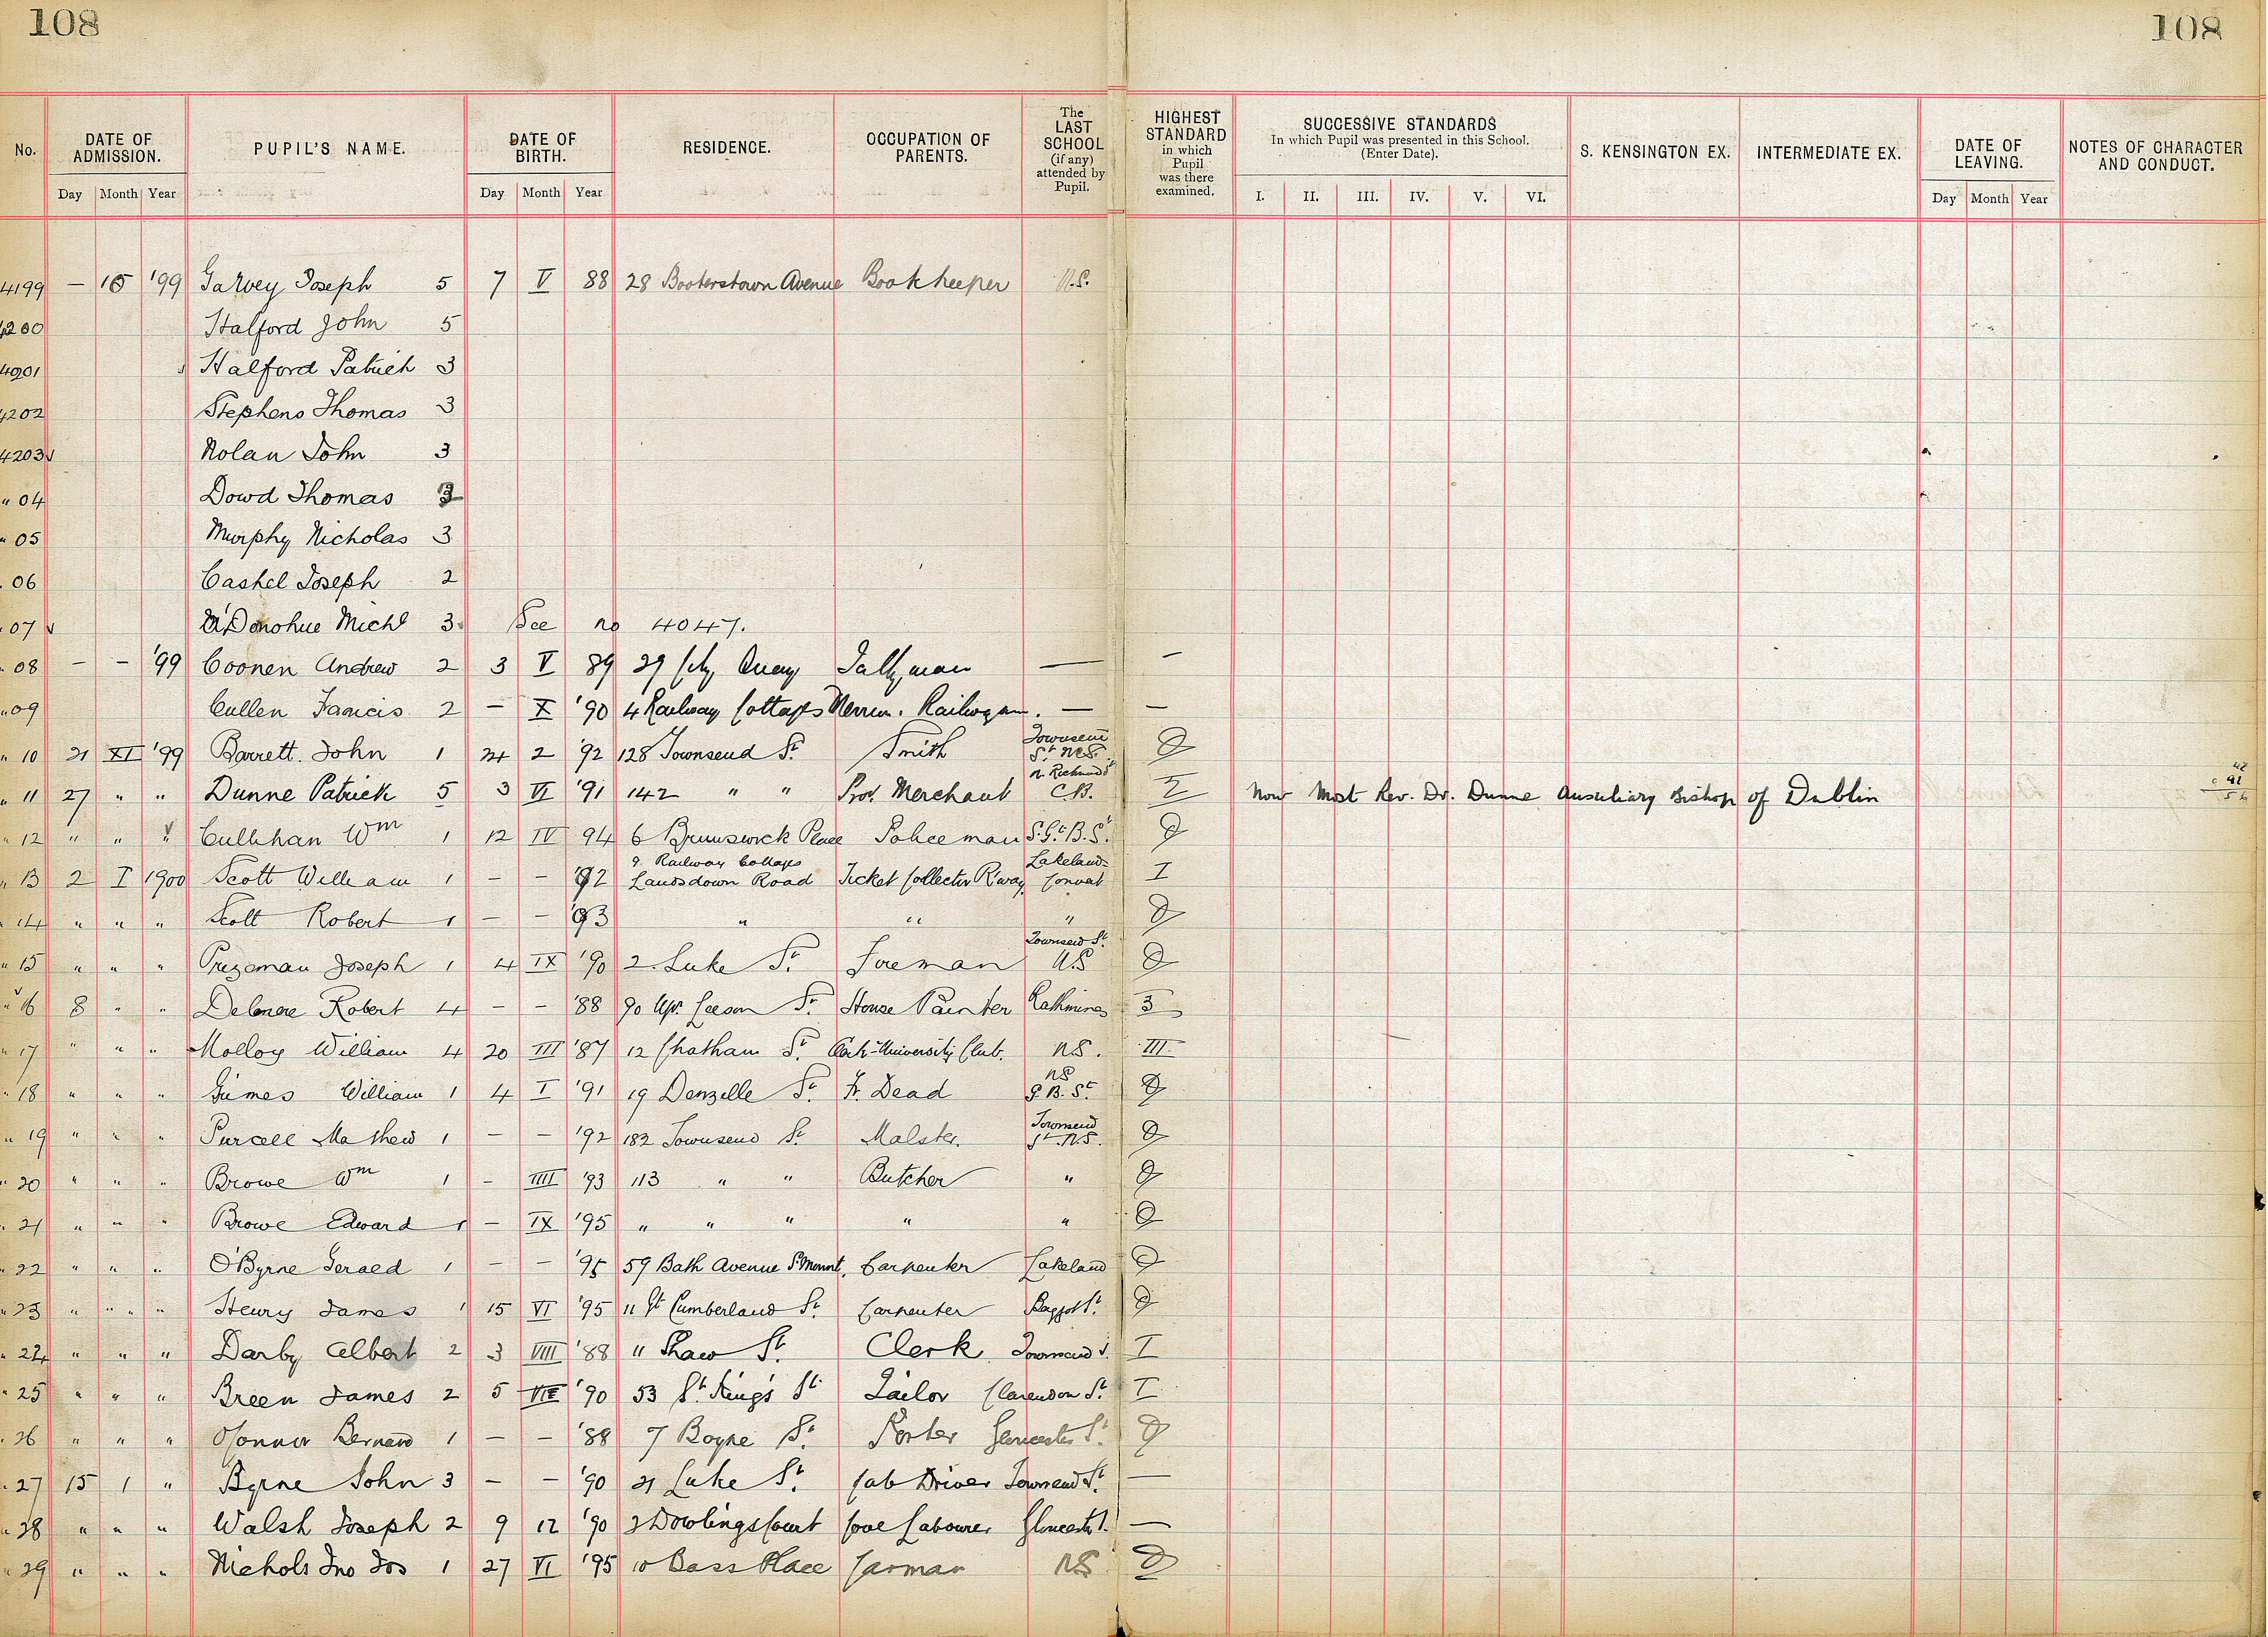 108 108
No. DATE OF ADMISSION. PUPIL'S NAME. DATE OF BIRTH. RESIDENCE. OCCUPATION OF PARENTS. The LAST SCHOOL (if any) attended by Pupil. HIGHEST STANDARD in which Pupil was there examined. SUCCESSIVE STANDARDS In which Pupil was presented in this School. (Enter Date). S. KENSINGTON EX. INTERMEDIATE EX. DATE OF LEAVING. NOTES OF CHARACTER AND CONDUCT.
Day Month Year Day Month Year I. II. III. IV. V. VI. Day Month Year
4199 — '99 Garvey Joseph 5 7 V 88 28 Booterstown Avenue Bookkeeper N.S.
4200 Halford John 5
4201 Halford Patrick 3
4202 Stephens Thomas 3
4203 Nolan John 3
" 04 Dowd Thomas
" 05 Murphy Nicholas 3
" 06 Cashel Joseph 2
" 07 McDonohue Michl 3 See no 4047.
" 08 — — '99 Coonen Andrew 2 3 V 89 29 City Quay Tallyman — —
" 09 Cullen Francis 2 — X '90 4 Railway Cottages Merrion. Railwayman. — —
" 10 21 XI '99 Barrett John 1 24 2 '92 128 Townsend St. Smith Townsend St. N.S. 0
" 11 27 " " Dunne Patrick 5 3 VI '91 142 " " Prov. Merchant N. Richmond St C.B. Now Most Rev. Dr. Dunne Auxiliary Bishop of Dublin
" 12 " " " Cullihan Wm 1 12 IV 94 6 Brunswick Place Policeman S. Gt. B. St. 0
" 13 2 I 1900 Scott William 1 — — '92 9 Railway Cottages Lansdown Road Ticket Collector R'way Lakelands Convat I
" 14 " " " Scott Robert 1 — — '93 " " " 0
" 15 " " " Prizeman Joseph 1 4 IX '90 2 Luke St. Foreman Townsend St. N.S 0
" 16 8 " " Delmere Robert 4 — — '88 90 Upr. Leeson St. House Painter Rathmines 3
" 17 " " " Molloy William 4 20 III '87 12 Chatham St. University Club. N.S. III
" 18 " " " Grimes William 1 4 I '91 19 Denzelle St. Fr. Dead N.S G. B. St. 0
" 19 " " " Purcell Mathew 1 — — '92 182 Townsend St. Malster. Townsend St. N.S. 0
" 20 " " " Browe Wm 1 — IIII '93 113 " " Butcher " 0
" 21 " " " Browe Edward 1 — IX '95 " " " " " 0
" 22 " " " O'Byrne Gerald 1 — — '95 59 Bath Avenue S'Mount. Carpenter Lakeland 0
" 23 " " " Henry James 1 15 VI '95 11 Gt Cumberland St. Carpenter Baggot St. 0
" 24 " " " Darby Albert 2 3 VIII '88 11 Shaw St. Clerk Townsend S. I
" 25 " " " Breen James 2 5 VII '90 53 St. King's St. Tailor Clarendon St. I
" 26 " " " O'Connor Bernard 1 — — '88 7 Boyne St. Porter Gloucester St. 0
" 27 15 1 " Byrne John 3 — — '90 21 Luke St. Cab Driver Townsend St. —
" 28 " " " Walsh Joseph 2 9 12 '90 3 Dowlings Court Labourer Gloucester S. —
" 29 " " " Nichols Jno Jos 1 27 VI '95 10 Bass Place Carman N.S 0